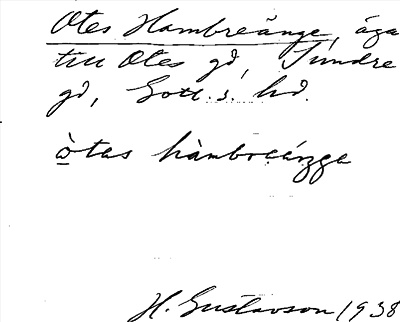 Otes Hambreänge, äga
till Otes gd, Sundre
gd, Gotl. s. hd.
òtas hàmbreáŋga
H. Gustavson 1938